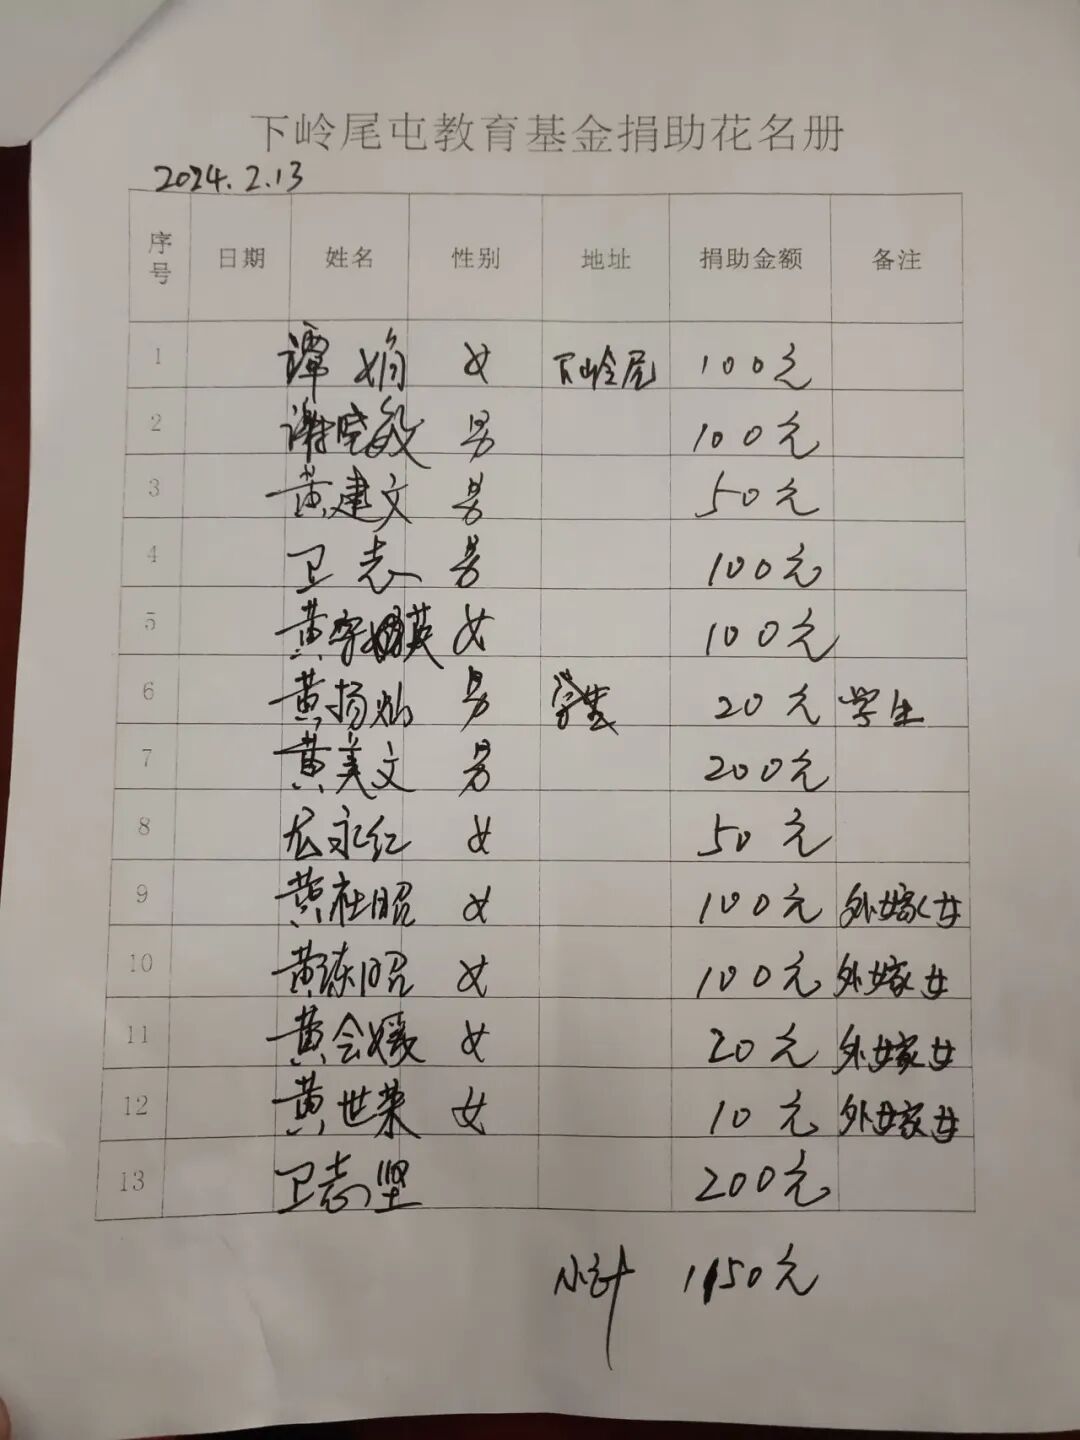 下岭尾屯教育基金捐助花名册
2024.2.13
序号 日期 姓名 性别 地址 捐助金额 备注
1 谭娟 女 下岭尾 100元
2 谢晓敏 男 100元
3 黄建文 男 50元
4 卫志 男 100元
5 黄 英 女 100元
6 黄扬灿 男 20元 学生
7 黄美文 男 200元
8 永红 女 50元
9 黄社昭 女 100元 外嫁女
10 黄 昭 女 100元 外嫁女
11 黄会媛 女 20元 外嫁女
12 黄世荣 女 10元 外嫁女
13 卫志坚 200元
小计 1150元